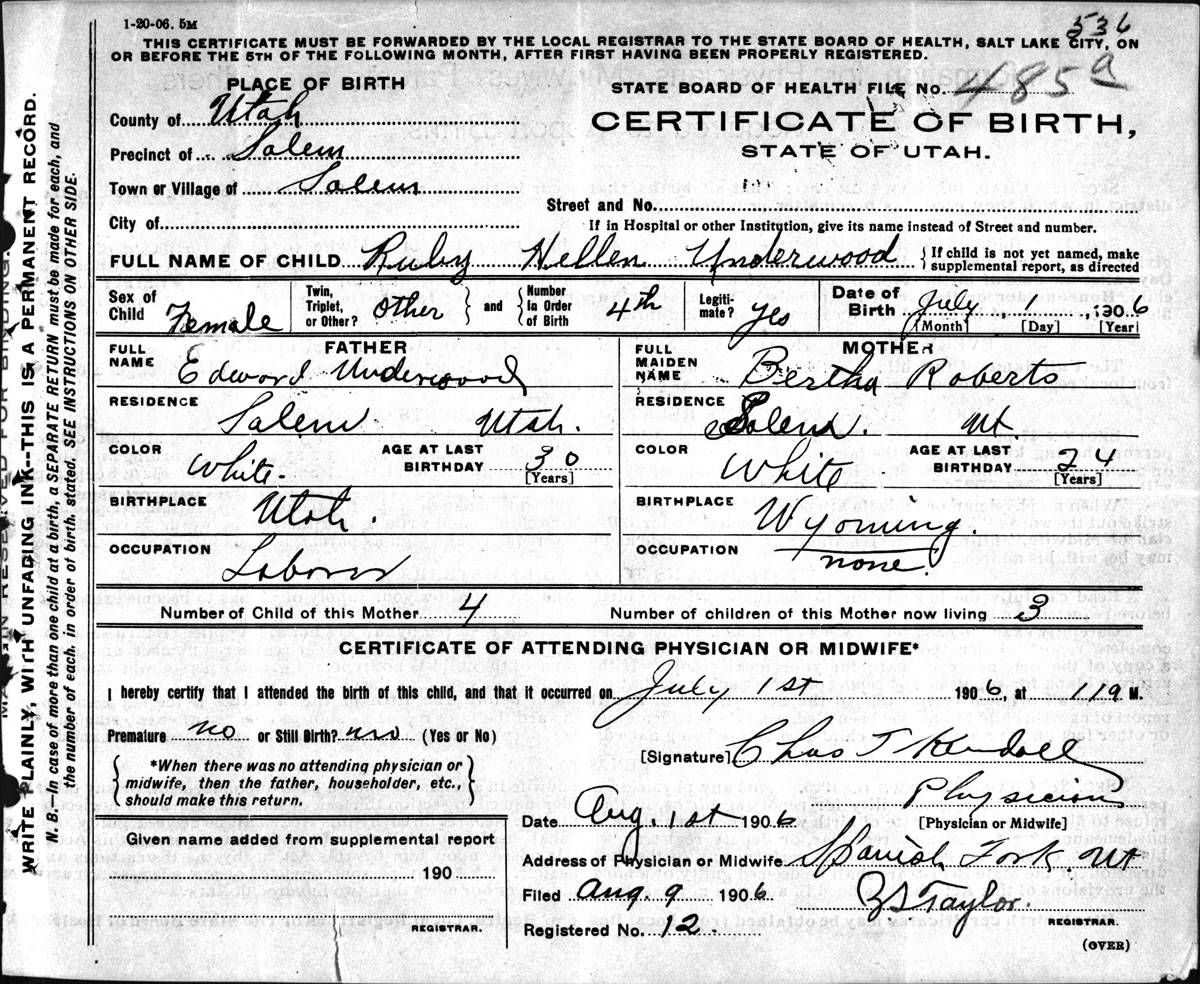 1-20-06. 5M
536
THIS CERTIFICATE MUST BE FORWARDED BY THE LOCAL REGISTRAR TO THE STATE BOARD OF HEALTH, SALT LAKE CITY, ON
OR BEFORE THE 5TH OF THE FOLLOWING MONTH, AFTER FIRST HAVING BEEN PROPERLY REGISTERED.
PLACE OF BIRTH
STATE BOARD OF HEALTH FILE No. 485a
County of Utah
CERTIFICATE OF BIRTH,
Precinct of Salem
STATE OF UTAH.
Town or Village of Salem
Street and No.
City of
If in Hospital or other Institution, give its name instead of Street and number.
FULL NAME OF CHILD Ruby Hellen Underwood { If child is not yet named, make
supplemental report, as directed
Sex of Child Female
Twin, Triplet, or Other? Other } and { Number in Order of Birth 4th
Legiti-mate? Yes
Date of Birth July 1, 1906
[Month] [Day] [Year]
FATHER
FULL NAME Edward Underwood
RESIDENCE Salem Utah.
COLOR White. AGE AT LAST BIRTHDAY 30
[Years]
BIRTHPLACE Utah.
OCCUPATION Laborer
MOTHER
FULL MAIDEN NAME Bertha Roberts
RESIDENCE Salem. Ut.
COLOR White AGE AT LAST BIRTHDAY 24
[Years]
BIRTHPLACE Wyoming.
OCCUPATION none.
Number of Child of this Mother 4 Number of children of this Mother now living 3
CERTIFICATE OF ATTENDING PHYSICIAN OR MIDWIFE*
I hereby certify that I attended the birth of this child, and that it occurred on July 1st 1906, at 119 M.
Premature no or Still Birth? no (Yes or No)
{ *When there was no attending physician or
midwife, then the father, householder, etc.,
should make this return. }
[Signature] Chas T Kendall
Physician
[Physician or Midwife]
Date Aug. 1st 1906
Address of Physician or Midwife Spanish Fork Ut
Filed Aug. 9 1906
ZS Taylor.
REGISTRAR.
Registered No. 12.
(OVER)
Given name added from supplemental report
190
REGISTRAR.
WRITE PLAINLY, WITH UNFADING INK--THIS IS A PERMANENT RECORD.
N. B.—In case of more than one child at a birth, a SEPARATE RETURN must be made for each, and
the number of each, in order of birth, stated. SEE INSTRUCTIONS ON OTHER SIDE.